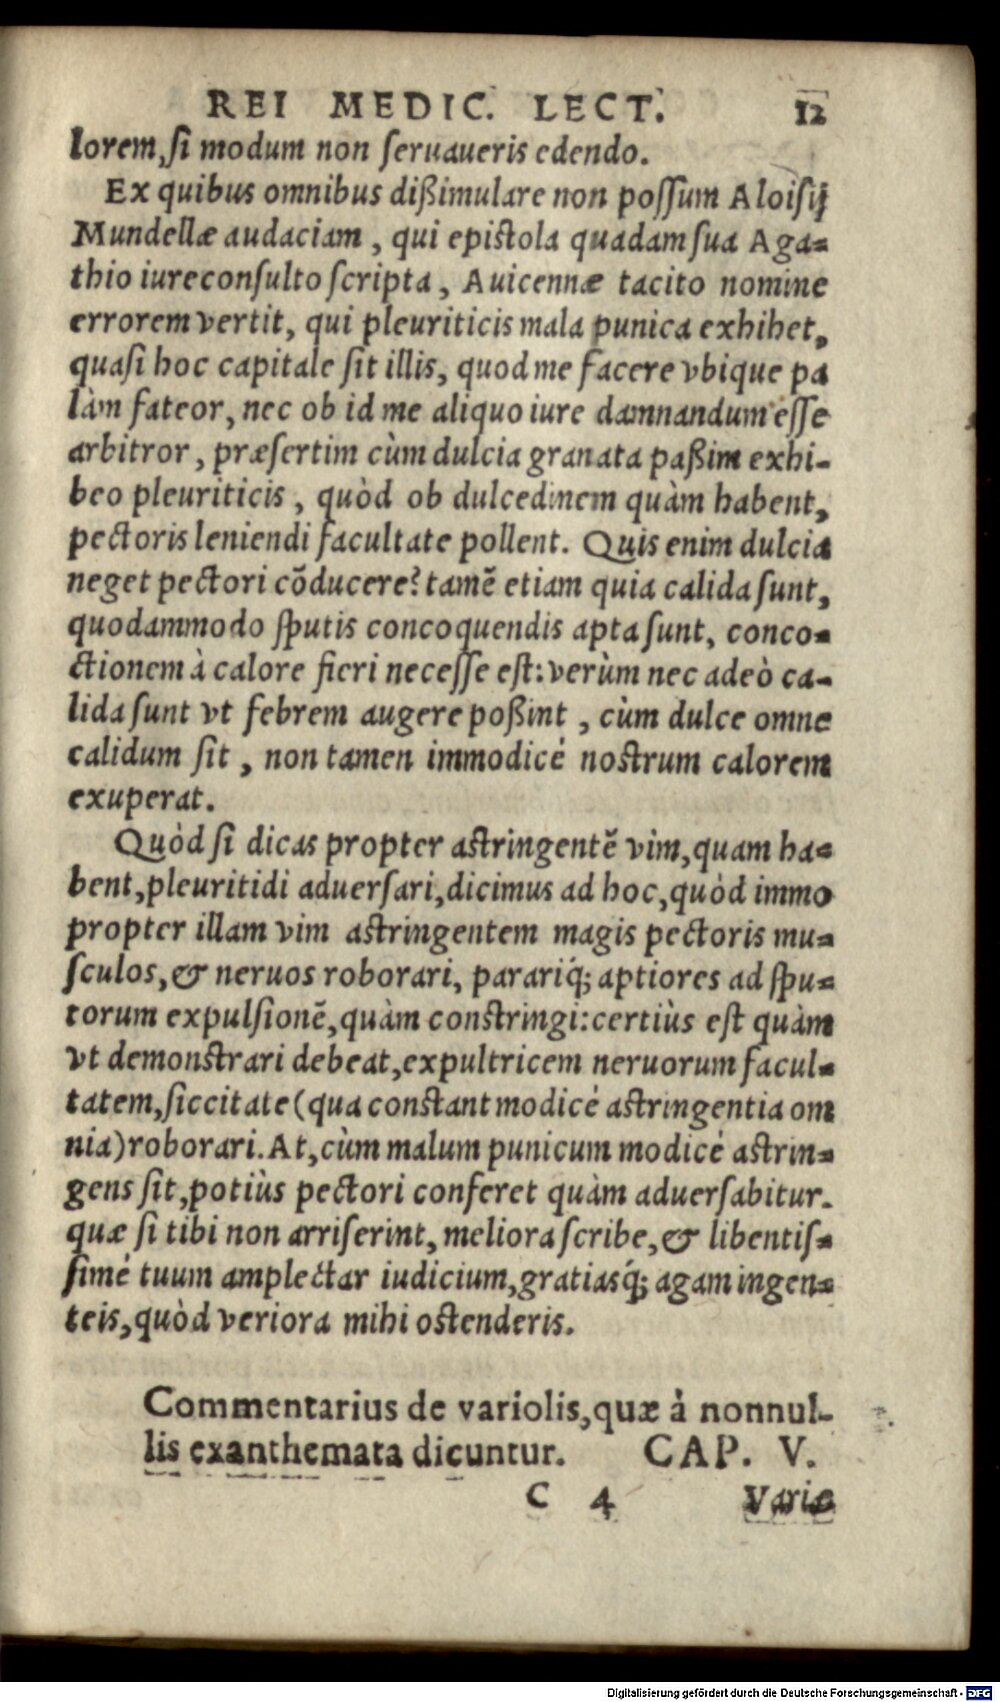 REI MEDIC. LECT. 12
lorem, si modum non seruaueris edendo.
Ex quibus omnibus dißimulare non possum Aloisij
Mundellæ audaciam, qui epistola quadam sua Aga-
thio iureconsulto scripta, Auicennæ tacito nomine
errorem vertit, qui pleuriticis mala punica exhibet,
quasi hoc capitale sit illis, quod me facere vbique pa
làm fateor, nec ob id me aliquo iure damnandum esse
arbitror, præsertim cùm dulcia granata paßim exhi-
beo pleuriticis, quòd ob dulcedinem quàm habent,
pectoris leniendi facultate pollent. Quis enim dulcia
neget pectori cõducere? tamẽ etiam quia calida sunt,
quodammodo sputis concoquendis apta sunt, conco-
ctionem à calore fieri necesse est: verùm nec adeò ca-
lida sunt vt febrem augere poßint, cùm dulce omne
calidum sit, non tamen immodicé nostrum calorem
exuperat.
Quòd si dicas propter astringentẽ vim, quam ha-
bent, pleuritidi aduersari, dicimus ad hoc, quòd immo
propter illam vim astringentem magis pectoris mu-
sculos, & neruos roborari, parariq́; aptiores ad spu-
torum expulsionẽ, quàm constringi: certiùs est quàm
vt demonstrari debeat, expultricem neruorum facul-
tatem, siccitate (qua constant modicé astringentia om
nia) roborari. At, cùm malum punicum modicé astrin-
gens sit, potiùs pectori conferet quàm aduersabitur.
quæ si tibi non arriserint, meliora scribe, & libentis-
simé tuum amplectar iudicium, gratiasq́; agam ingen-
teis, quòd veriora mihi ostenderis.
Commentarius de variolis, quæ à nonnul-
lis exanthemata dicuntur. CAP. V.
C 4 Variæ
Digitalisierung gefördert durch die Deutsche Forschungsgemeinschaft - DFG